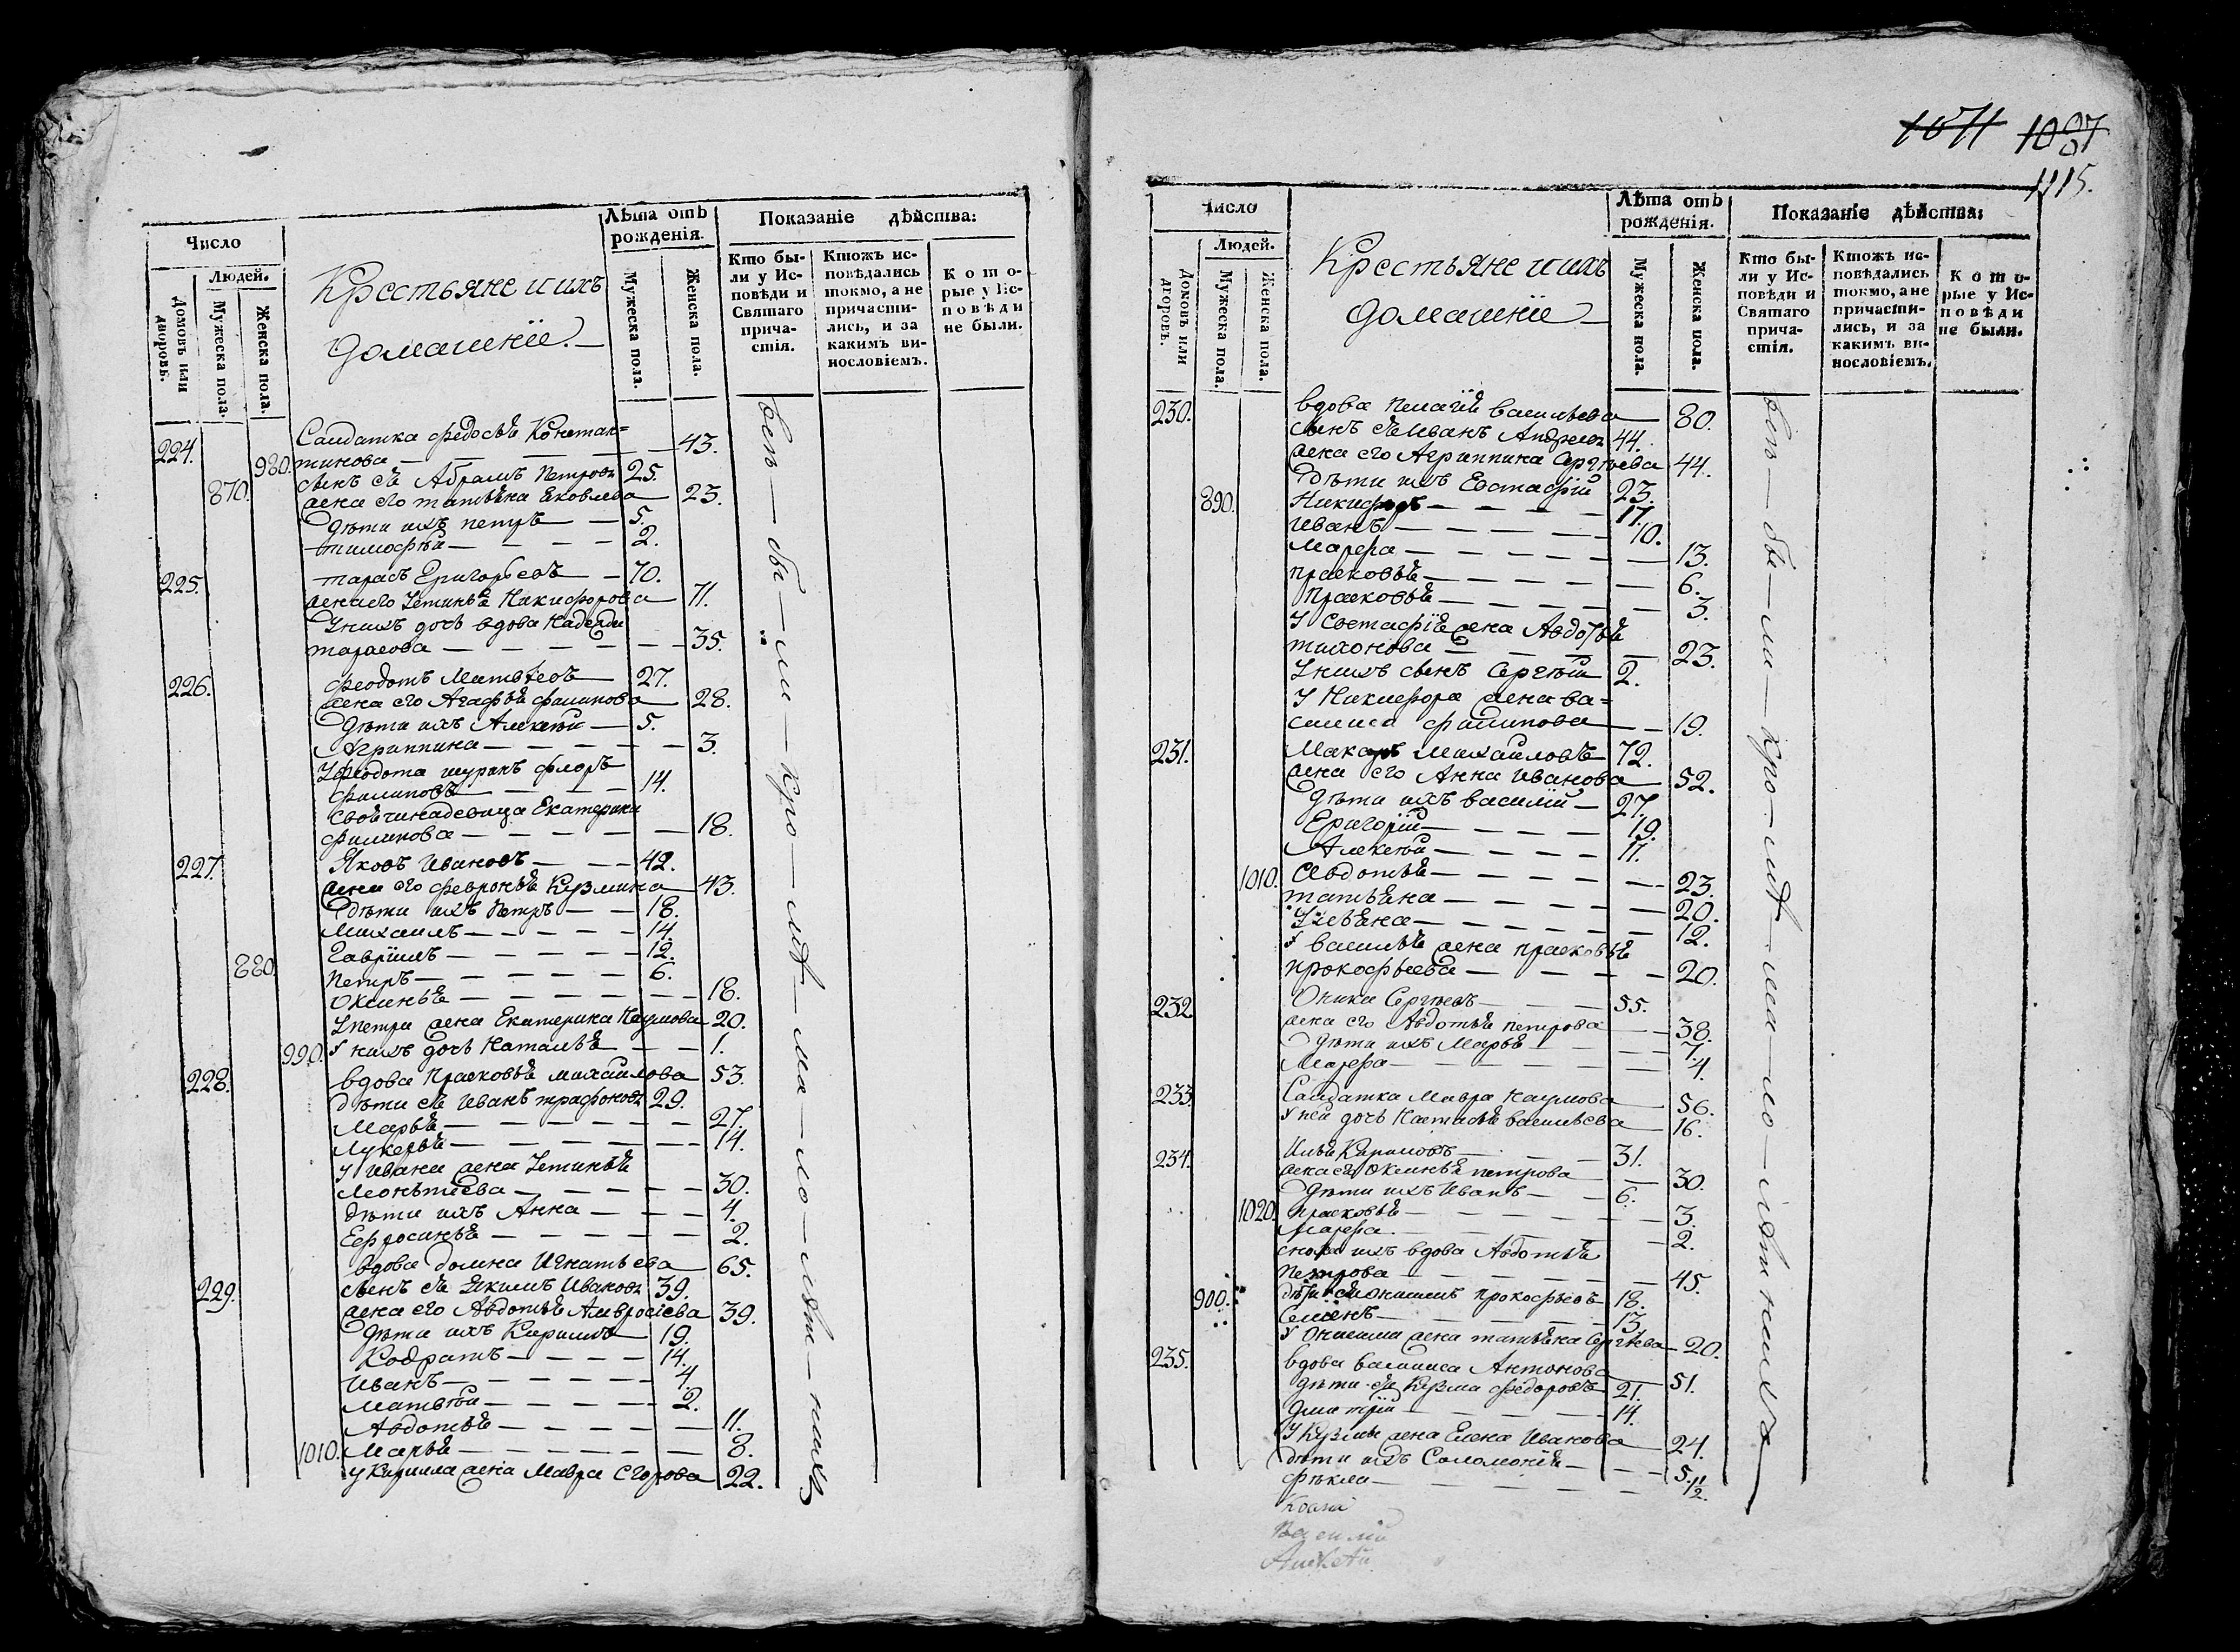 Число
Людей.
Домовъ или дворовъ.
Мужеска пола.
Женска пола.
Крестьяне и ихъ
домашніе
Лѣта отъ рожденія.
Мужеска пола.
Женска пола.
Показаніе дѣйства:
Кто бы-
ли у Ис-
повѣди и
Святаго
прича-
стія.
Ктожъ ис-
повѣдались
токмо, а не
причасти-
лись, и за
какимъ ви-
нословіемъ.
Кото-
рые у Ис-
повѣди
не были.
224. Салдатка Федосья Констан=
980. тинова — 43.
сынъ ея Абрамъ Петровъ 25.
870. жена его татьяна Яковлева — 23.
дѣти ихъ петръ — 5.
тимофѣй — 2.
225. тарасъ Григорьевъ — 70.
жена его Устинья Никифорова — 71.
У нихъ дочь вдова Надежда
тарасова — 35.
226. феодотъ Матвѣевъ — 27.
жена его Агафья филипова — 28.
Дѣти ихъ Алексѣй — 5.
Агрипнина — 3.
У феодота шуринъ флоръ
филиповъ — 14.
девица Екатерина
филипова — 18.
227. Яковъ Ивановъ — 42.
жена его февронья Кузмина — 43.
дѣти ихъ Петръ — 18.
Михаилъ — 14.
Гавріилъ — 12.
880. Петръ — 6.
Оксинья — 18.
У петра жена Екатерина Наумова 20.
990. У нихъ дочь Наталья — 1.
228. вдова Прасковья михаилова 53.
дѣти ея Иванъ трафоновъ 29.
Марья — 27.
Лукерья — 14.
У Ивана жена Устинья
Леонтиева — 30.
дѣти ихъ Анна — 4.
Ефросинья — 2.
вдова домна Игнатьева — 65.
299. сынъ ея Екимъ Ивановъ 39.
жена его Авдотья Амвросіева 39.
Дѣти ихъ Кирилъ — 19.
Кодратъ — 14.
Иванъ — 4.
Матвѣй — 2.
Авдотья — 11.
1010. Марья — 8.
у Кирилла жена Мавра Егорова 22.
всѣ — бы — ли — кро — мѣ — ма — ло — лѣт — нихъ
1071 1087
1115.
Число
Людей.
Домовъ или дворовъ.
Мужеска пола.
Женска пола.
Крестьяне и ихъ
домашніе
Лѣта отъ рожденія.
Мужеска пола.
Женска пола.
Показаніе дѣйства:
Кто бы-
ли у Ис-
повѣди и
Святаго
прича-
стія.
Ктожъ ис-
повѣдались
токмо, а не
причасти-
лись, и за
какимъ ви-
нословіемъ.
Кото-
рые у Ис-
повѣди
не были.
230. вдова Пелагія васильева — 80.
сынъ ея Иванъ Андреевъ 44.
жена его Агриппина Сергѣева 44.
дѣти ихъ Евстафій 23.
890. Никифоръ — 17.
Иванъ — 10.
Марфа — 13.
прасковья — 6.
Прасковья — 3.
У Евстафія жена Авдотья
тихонова — 23.
У нихъ сынъ Сергѣй 2.
У Никифора жена ва=
силиса филипова — 19.
231. Макаръ Михаиловъ 72.
жена его Анна Иванова — 52.
дѣти ихъ василій — 27.
Григорій — 19.
Алексѣй — 11.
1010. Евдотья — 23.
татьяна — 20.
Ульяна — 12.
У василья жена прасковья
прокофьева — 20.
232. Оника Сергѣевъ — 55.
жена его Авдотья петрова — 38.
дѣти ихъ Марья — 7.
Марфа — 4.
233. Салдатка Мавра Наумова — 56.
У ней дочь Настасья васильева — 16.
234. Илья Кириловъ — 31.
жена его Оксинья петрова — 30.
дѣти ихъ Иванъ — 6.
1020. прасковья — 3.
Марфа — 2.
сноха ихъ вдова Авдотья
Петрова — 45.
900. дѣти ея Онисимъ прокофьевъ 18.
Семенъ — 13.
У Онисима жена татьяна Сергѣева — 20.
235. вдова василиса Антонова — 51.
дѣти ея Кузма федоровъ 21.
дмитрій — 14.
У Кузмы жена Елена Иванова — 24.
дѣти ихъ Соломонія — 5.
фекла — 1/2.
василій
Алексѣй
всѣ — бы — ли — кро — мѣ — ма — ло — лѣт нихъ